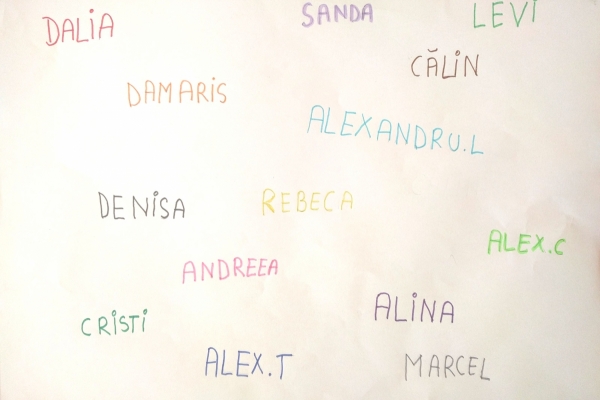 DALiA
SANDA
LEVI
CĂLiN
DAMARiS
ALEXANDRU.L
DENiSA
REBECA
ALEX.C
ANDREEA
ALiNA
CRiSTi
ALEX.T
MARCEL